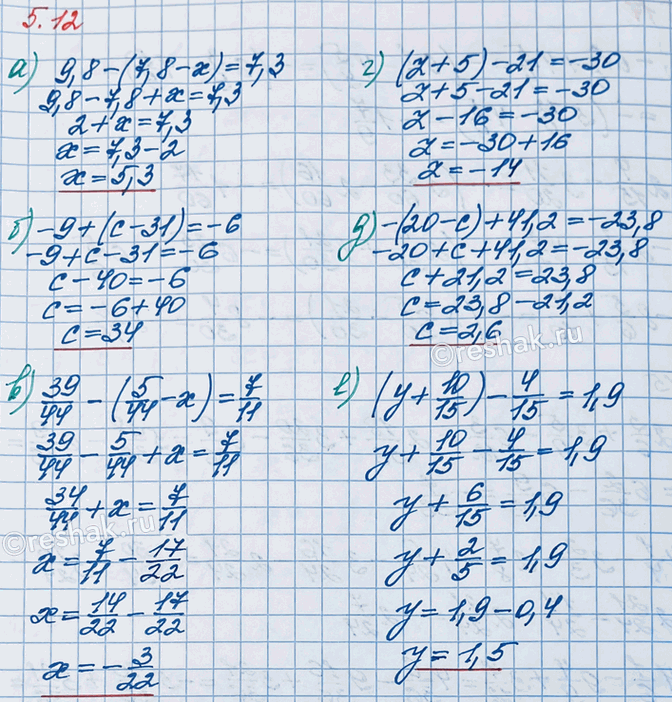 5.12
а) 9,8-(7,8-x)=7,3
9,8-7,8+x=7,3
2+x=7,3
x=7,3-2
x=5,3
б) -9+(c-31)=-6
-9+c-31=-6
c-40=-6
c=-6+40
c=34
в) 39/44 - (5/44 - x) = 7/11
39/44 - 5/44 + x = 7/11
34/44 + x = 7/11
x = 7/11 - 17/22
x = 14/22 - 17/22
x = -3/22
г) (z+5)-21=-30
z+5-21=-30
z-16=-30
z=-30+16
z=-14
д) -(20-c)+41,2=-23,8
-20+c+41,2=-23,8
c+21,2=23,8
c=23,8-21,2
c=2,6
е) (y + 10/15) - 4/15 = 1,9
y + 10/15 - 4/15 = 1,9
y + 6/15 = 1,9
y + 2/5 = 1,9
y=1,9-0,4
y=1,5
©reshak.ru
©reshak.ru